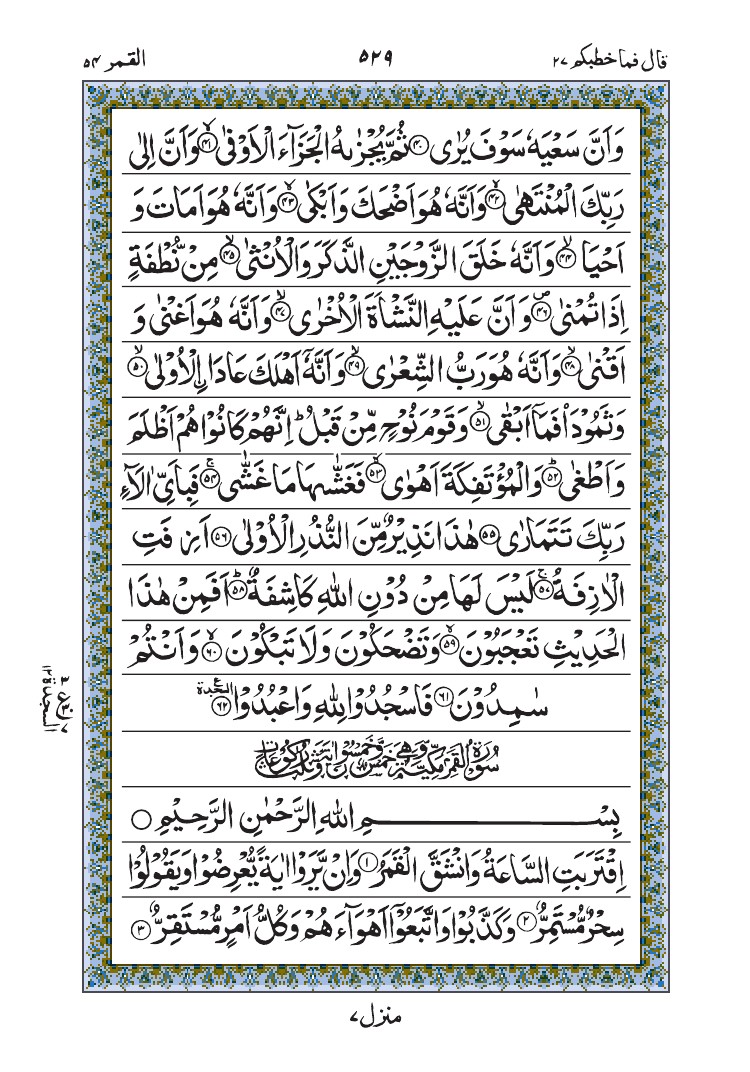 قال فماخطبكم ٢٧
٥٢٩
القمر ٥٤
وَاَنَّ سَعْيَهٗ سَوْفَ يُرٰى ﴿۴۰﴾ ثُمَّ يُجْزٰىهُ الْجَزَآءَ الْاَوْفٰى ﴿۴۱﴾ وَاَنَّ اِلٰى
رَبِّكَ الْمُنْتَهٰى ﴿۴۲﴾ وَاَنَّهٗ هُوَ اَضْحَكَ وَاَبْكٰى ﴿۴۳﴾ وَاَنَّهٗ هُوَ اَمَاتَ وَ
اَحْيَا ﴿۴۴﴾ وَاَنَّهٗ خَلَقَ الزَّوْجَيْنِ الذَّكَرَ وَالْاُنْثٰى ﴿۴۵﴾ مِنْ نُّطْفَةٍ
اِذَا تُمْنٰى ﴿۴۶﴾ وَاَنَّ عَلَيْهِ النَّشْاَةَ الْاُخْرٰى ﴿۴۷﴾ وَاَنَّهٗ هُوَ اَغْنٰى وَ
اَقْنٰى ﴿۴۸﴾ وَاَنَّهٗ هُوَ رَبُّ الشِّعْرٰى ﴿۴۹﴾ وَاَنَّهٗٓ اَهْلَكَ عَادَا۟ ِ۟الْاُوْلٰى ﴿۵۰﴾
وَثَمُوْدَا۟ فَمَآ اَبْقٰى ﴿۵۱﴾ وَقَوْمَ نُوْحٍ مِّنْ قَبْلُ ؕ اِنَّهُمْ كَانُوْا هُمْ اَظْلَمَ
وَاَطْغٰى ﴿۵۲﴾ وَالْمُؤْتَفِكَةَ اَهْوٰى ﴿۵۳﴾ فَغَشّٰىهَا مَا غَشّٰى ﴿۵۴﴾ فَبِاَىِّ اٰلَآءِ
رَبِّكَ تَتَمَارٰى ﴿۵۵﴾ هٰذَا نَذِيْرٌ مِّنَ النُّذُرِ الْاُوْلٰى ﴿۵۶﴾ اَزِفَتِ
الْاٰزِفَةُ ﴿۵۷﴾ لَيْسَ لَهَا مِنْ دُوْنِ اللّٰهِ كَاشِفَةٌ ﴿۵۸﴾ اَفَمِنْ هٰذَا
الْحَدِيْثِ تَعْجَبُوْنَ ﴿۵۹﴾ وَتَضْحَكُوْنَ وَلَا تَبْكُوْنَ ﴿۶۰﴾ وَاَنْتُمْ
سٰمِدُوْنَ ﴿۶۱﴾ فَاسْجُدُوْا لِلّٰهِ وَاعْبُدُوْا ﴿۶۲﴾ السجدة
السجدة ١٢
سُوْرَةُ الْقَمَرِ مَكِّيَّةٌ وَّهِيَ خَمْسٌ وَّخَمْسُوْنَ اٰيَةً وَّثَلٰثُ رُكُوْعَاتٍ
بِسْمِ اللّٰهِ الرَّحْمٰنِ الرَّحِيْمِ
اِقْتَرَبَتِ السَّاعَةُ وَانْشَقَّ الْقَمَرُ ﴿۱﴾ وَاِنْ يَّرَوْا اٰيَةً يُّعْرِضُوْا وَيَقُوْلُوْا
سِحْرٌ مُّسْتَمِرٌّ ﴿۲﴾ وَكَذَّبُوْا وَاتَّبَعُوْٓا اَهْوَآءَهُمْ وَكُلُّ اَمْرٍ مُّسْتَقِرٌّ ﴿۳﴾
منزل ٧